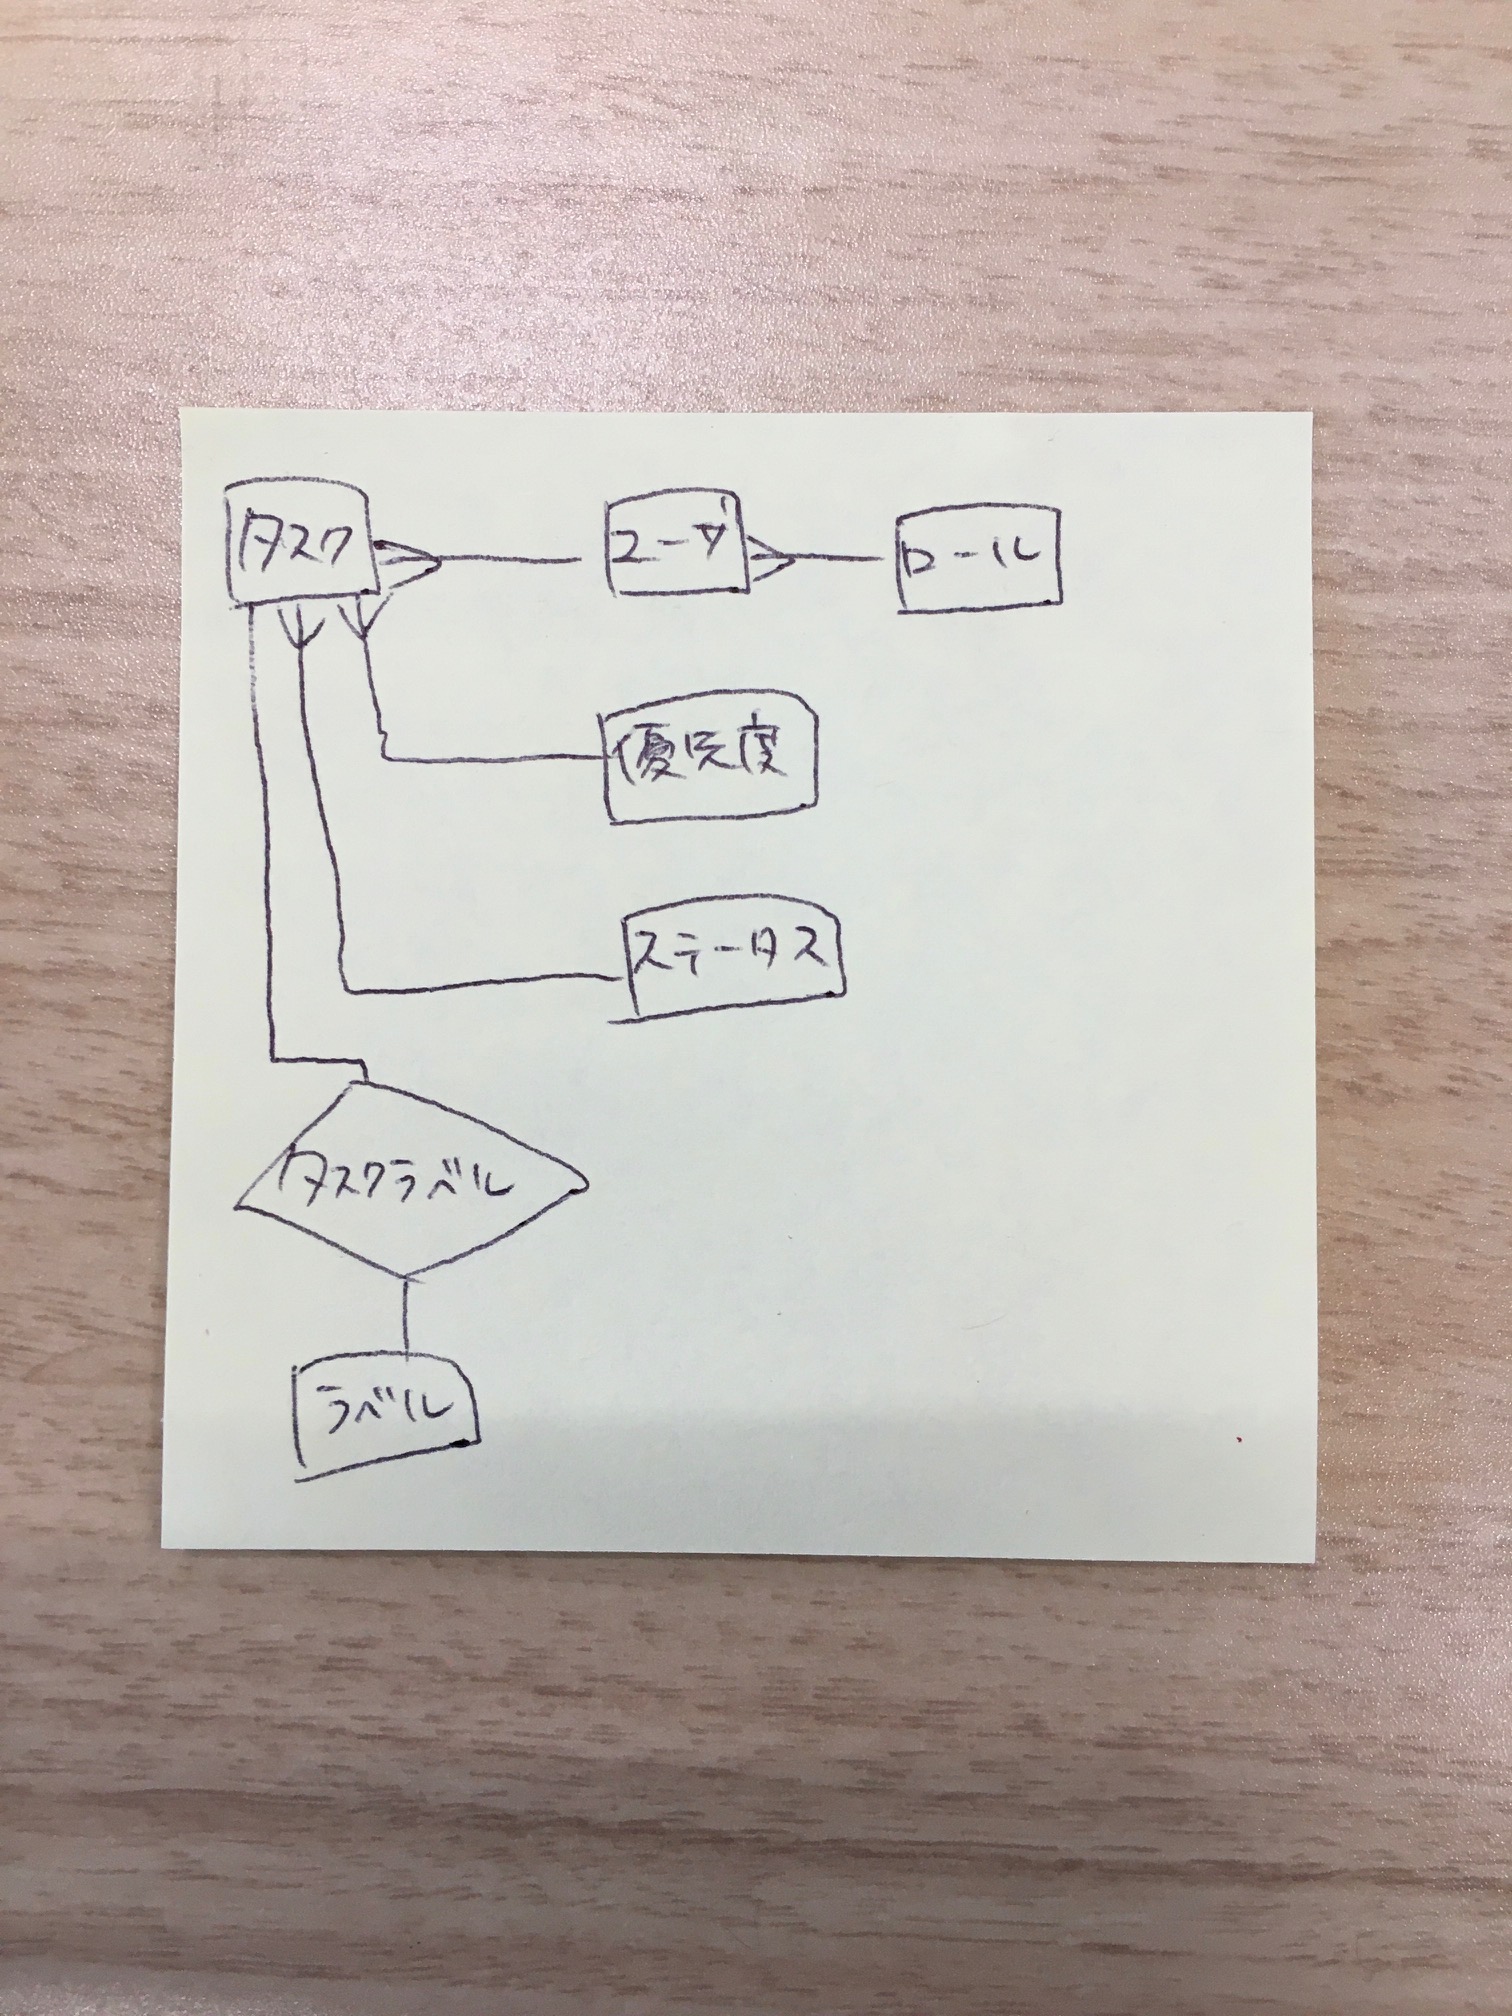 タスク
ユーザ
ロール
優先度
ステータス
タスクラベル
ラベル